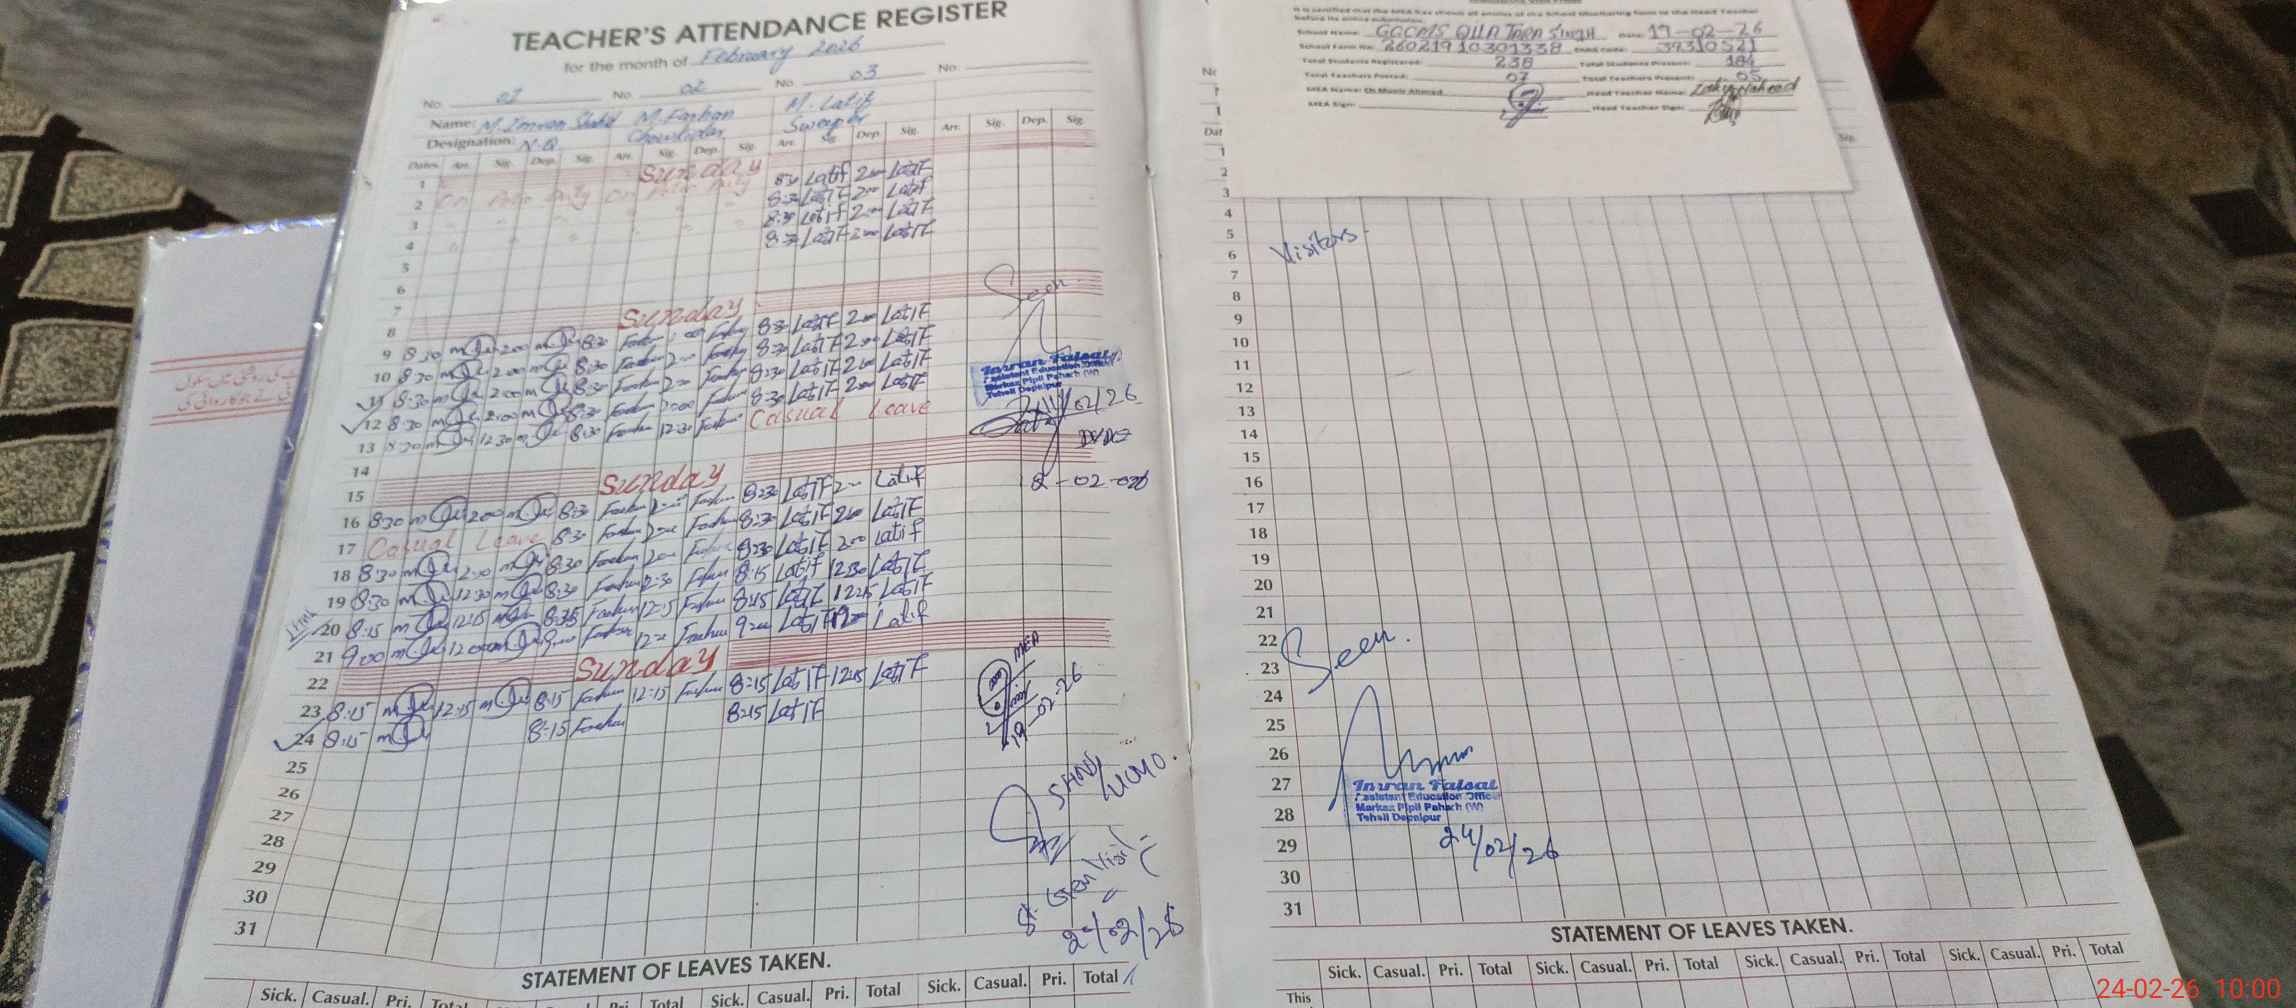 TEACHER'S ATTENDANCE REGISTER
for the month of February 2026
No. 01 No. 02 No. 03 No.
Name: M. Imran Shahid M. Farhan M. Latif
Designation: N.Q. Chowkidar Sweeper
Dates Arr. Sig. Dep. Sig. Arr. Sig. Dep. Sig. Arr. Sig. Dep. Sig. Arr. Sig. Dep. Sig.
1 Sunday
2 On Polio Duty On Polio Duty 8:30 Latif 2:00 Latif
3 " " " " " " 8:30 Latif 2:00 Latif
4 " " " " " " 8:30 Latif 2:00 Latif
8:30 Latif 2:00 Latif
5
6
7
8 Sunday
9 8:30 2:00 8:30 Farhan 2:00 Farhan 8:30 Latif 2:00 Latif
10 8:30 2:00 8:30 Farhan 2:00 Farhan 8:30 Latif 2:00 Latif
11 8:30 2:00 8:30 Farhan 2:00 Farhan 8:30 Latif 2:00 Latif
12 8:30 2:00 8:30 Farhan 2:00 Farhan 8:30 Latif 2:00 Latif
13 8:30 12:30 8:30 Farhan 12:30 Farhan Casual Leave
14
15 Sunday
16 8:30 2:00 8:30 Farhan 2:00 Farhan 8:30 Latif 2:00 Latif
17 Casual Leave 8:30 Farhan 2:00 Farhan 8:30 Latif 2:00 Latif
18 8:30 2:00 8:30 Farhan 2:00 Farhan 8:30 Latif 2:00 Latif
19 8:30 12:30 8:30 Farhan 12:30 Farhan 8:15 Latif 12:30 Latif
20 8:15 12:15 8:35 Farhan 12:15 Farhan 8:15 Latif 12:15 Latif
21 9:00 12:00 9:00 Farhan 12:00 Farhan 9:00 Latif 12:00 Latif
22 Sunday
23 8:15 12:15 8:15 Farhan 12:15 Farhan 8:15 Latif 12:15 Latif
24 8:15 8:15 Farhan 8:15 Latif
25
26
27
28
29
30
31
Seen.
Imran Faisal
Assistant Education Officer
Markaz Pipli Pahach (W)
Tehsil Depalpur
11/02/26
MEA
19-02-26
STATEMENT OF LEAVES TAKEN.
Sick. Casual. Pri. Total Pri. Total Sick. Casual. Pri. Total Sick. Casual. Pri. Total
School Name: GGCMS QILA TARA SINGH Date: 19-02-26
School Form No: 26021910301338 EMIS Code: 39310521
Total Students Registered: 238 Total Students Present: 184
Total Teachers Posted: 07 Total Teachers Present: 05
MEA Name: Ch Munir Ahmed Head Teacher Name:
MEA Sign: Head Teacher Sign:
Sig.
1
2
3
4
5
6 Visitors
7
8
9
10
11
12
13
14
15
16
17
18
19
20
21
22
23
24
25
26
27
28
29
30
31
Seen.
Imran Faisal
Assistant Education Officer
Markaz Pipli Pahach (W)
Tehsil Depalpur
24/02/26
STATEMENT OF LEAVES TAKEN.
Sick. Casual. Pri. Total Sick. Casual. Pri. Total Sick. Casual. Pri. Total Sick. Casual. Pri. Total
This
24-02-26 10:00